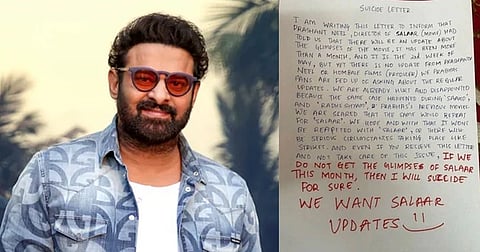 SUICIDE LETTER
I AM WRITING THIS LETTER TO INFORM THAT
PRASHANT NEEL, DIRECTOR OF SALAAR (MOVIE) HAD
TOLD US THAT THERE WILL BE AN UPDATE ABOUT
THE GLIMPSES OF THE MOVIE, IT HAS BEEN MORE
THAN A MONTH, AND IT IS THE 2ND WEEK OF
MAY, BUT YET THERE IS NO UPDATE FROM PRASHANTH
NEEL OR HOMBALE FILMS (PRODUCER) WE PRABHAS
FANS ARE FED UP OF ASKING ABOUT THE REGULAR
UPDATES. WE ARE ALREADY HURT AND DISAPPOINTED
BECAUSE THE SAME CASE HAPPENED DURING "SAAHO",
AND "RADHE SHYAM", PRABHAS'S PREVIOUS MOVIES.
WE ARE SCARED THAT THE SAME WOULD REPEAT
FOR "SALAAR". WE HOPE AND WISH THAT IT WON'T
BE REPEATED WITH "SALAAR", OR THERE WILL
BE SERIOUS CIRCUMSTANCES TAKING PLACE LIKE
STRIKES. AND EVEN IF YOU RECEIVE THIS LETTER
AND NOT TAKE CARE OF THIS ISSUE, IF WE
DO NOT GET THE GLIMPSES OF SALAAR
THIS MONTH, THEN I WILL SUICIDE
FOR SURE.
WE WANT SALAAR
UPDATES !!